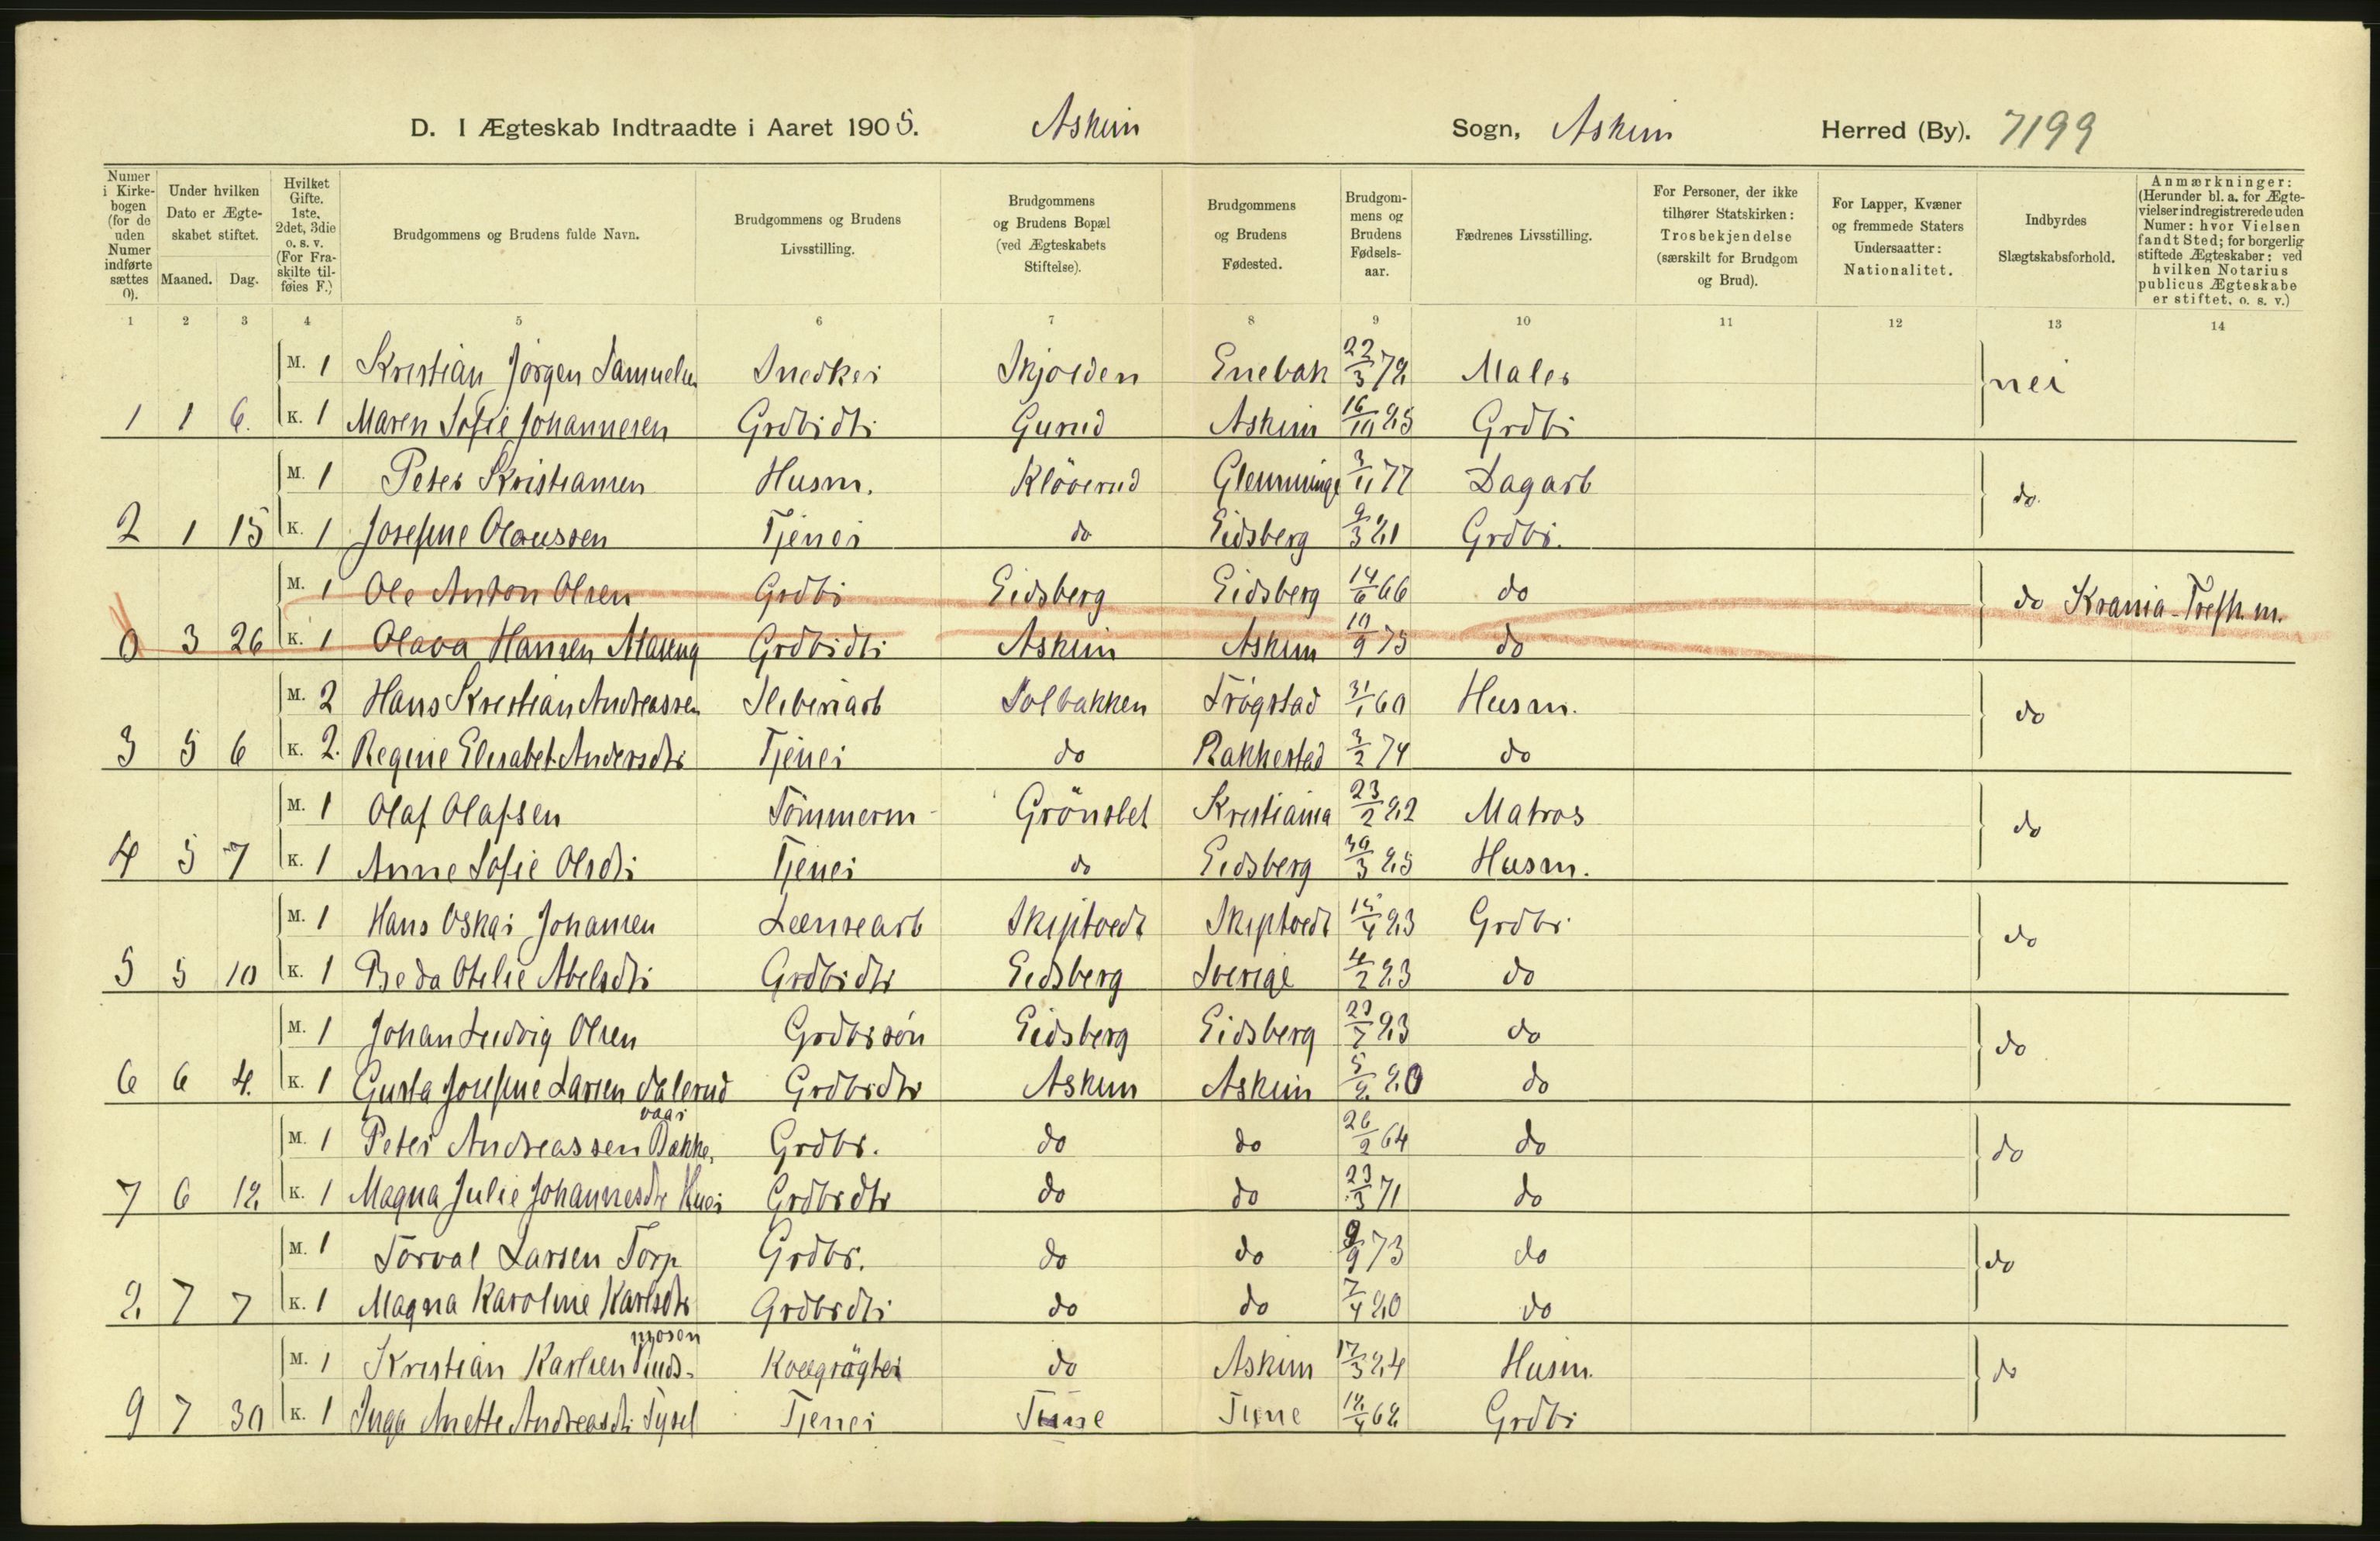 D. I Ægteskab Indtraadte i Aaret 1905. Askim Sogn, Askim Herred (By). 7199
Numer i Kirkebogen (for de uden Numer indførte sættes 0).
Under hvilken Dato er Ægteskabet stiftet.
Maaned. Dag.
Hvilket Gifte. 1ste, 2det, 3die o. s. v. (For Fraskilte tilføies F.)
Brudgommens og Brudens fulde Navn.
Brudgommens og Brudens Livsstilling.
Brudgommens og Brudens Bopæl (ved Ægteskabets Stiftelse).
Brudgommens og Brudens Fødested.
Brudgommens og Brudens Fødselsaar.
Fædrenes Livsstilling.
For Personer, der ikke tilhører Statskirken: Trosbekjendelse (særskilt for Brudgom og Brud).
For Lapper, Kvæner og fremmede Staters Undersaatter: Nationalitet.
Indbyrdes Slægtskabsforhold.
Anmærkninger: (Herunder bl. a. for Ægtevielser indregistrerede uden Numer: hvor Vielsen fandt Sted; for borgerlig stiftede Ægteskaber: ved hvilken Notarius publicus Ægteskabe er stiftet, o. s. v.)
1 2 3 4 5 6 7 8 9 10 11 12 13 14
M. 1 Kristian Jörgen Samuelsen Snedker Skjolden Enebak 22/3 78 Maler nei
1 1 6. K. 1 Maren Sofie Johannesen Grdbrdtr Gurud Askim 16/10 85 Grdbr
M. 1 Peter Kristiansen Husm. Klöverud Glemminge 3/11 77 Dagarb do.
2 1 15 K. 1 Josefine Olaussen Tjener do Eidsberg 9/3 81 Grdbr.
M. 1 Ole Anton Olsen Grdbr Eidsberg Eidsberg 14/6 66 do do
0 3 26 K. 1 Olava Hansen Grdbrdtr Askim Askim 10/9 75 do
M. 2 Hans Kristian Andreassen Sliberiarb Solbakken Trögstad 31/1 60 Husm. do
3 5 6 K. 2. Regine Elisabet Andersdtr Tjener do Rakkestad 3/2 74 do
M. 1 Olaf Olafsen Tömmerm Grönslet Kristiania 23/2 82 Matros do
4 5 7 K. 1 Anne Sofie Olsdtr Tjener do Eidsberg 30/3 85 Husm.
M. 1 Hans Oskar Johansen Lænsearb Skiptvedt Skiptvedt 15/4 83 Grdbr do
5 5 10 K. 1 Beda Otelie Abelsdtr Grdbrdtr Eidsberg Sverige 4/2 83 do
M. 1 Johan Ludvig Olsen Grdbrsön Eidsberg Eidsberg 23/7 83 do do
6 6 4. K. 1 Gusta Josefine Larsen Dalerud Grdbrdtr Askim Askim 5/8 80 do
vaar
M. 1 Peter Andreassen Bakke, Grdbr. do do 26/9 64 do do
7 6 18 K. 1 Magna Julie Johannesdtr Grdbrdtr do do 23/3 71 do
M. 1 Torval Larsen Torp Grdbr. do do 9/9 73 do do
8 7 7 K. 1 Magna Karoline Karlsdtr Grdbrdtr do do 7/4 80 do
mosen
M. 1 Kristian Karlsen Kvægrögter do Askim 17/3 84 Husm. do
9 7 30 K. 1 Inga Anette Andreasdtr Tjener Tune Tune 18/4 68 Grdbr